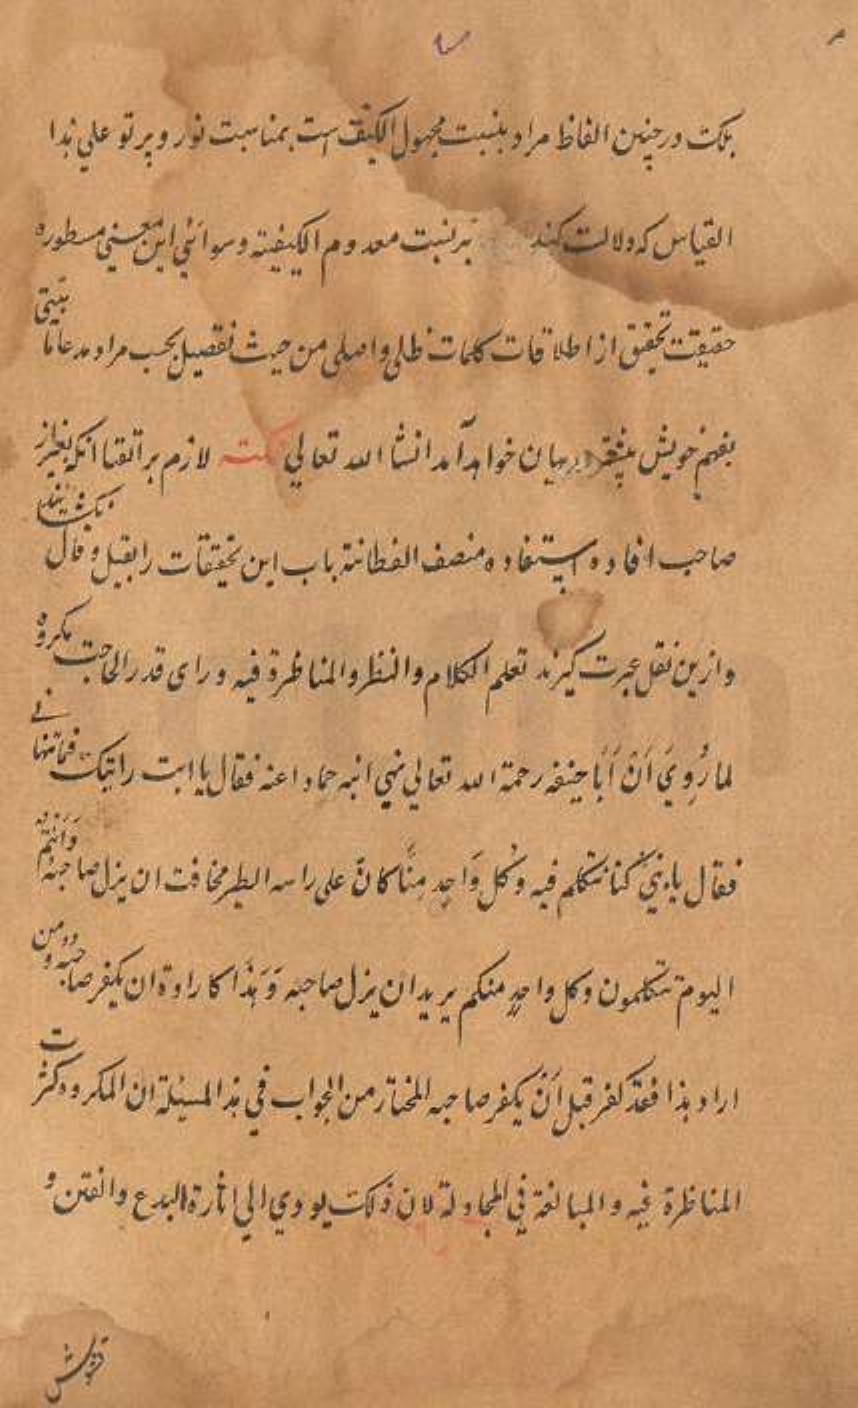 بلکه در چنین الفاظ مراد بنسبت مجهول الکیف است بمناسبت نور و پرتو علی هذا
القیاس که دلالت کند بر نسبت معدوم الکیفیته وسوائی این معنی مسطوره
حقیقت تحقیق از اطلاقات کلمات ظلی و اصلی من حیث تفصیل بحسب مراد مدعا ما
بفهم خویش در بیان خواهد آمد انشا الله تعالی نکته لازم بر اتقیا انکه بغیر از
صاحب افاده و استفاده منصف الفطانة باب این تحقیقات را بقیل و قال
وازین نقل عبرت گیرند تعلم الکلام والنظر والمناظرة فیه ورای قدر الحاجت مکروه
لما رُوِيَ اَنّ اَبَا حنیفه رحمة الله تعالی نهی ابنه حماد اعنه فقال یا ابت رایتک
فقال یا بنیّ کنا نتکلم فیه وکل وَاحِد مِنَّا کانّ علی راسه الطیر مخافت ان یزل صاحبه وَانتم
الیوم تتکلمون وکل واحدٍ منکم یرید ان یزل صاحبه وَهَذا کارادة ان یکفر صاحبه ومن
اراد هذا فقد کفر قبل اَنْ یکفر صاحبه المختار من الجواب فی هذ المسئلة ان المکروه کثرت
المناظرة فیه و المبالغة فی المجادلة لان ذلک یودی الی اثارة البدع والفتن و